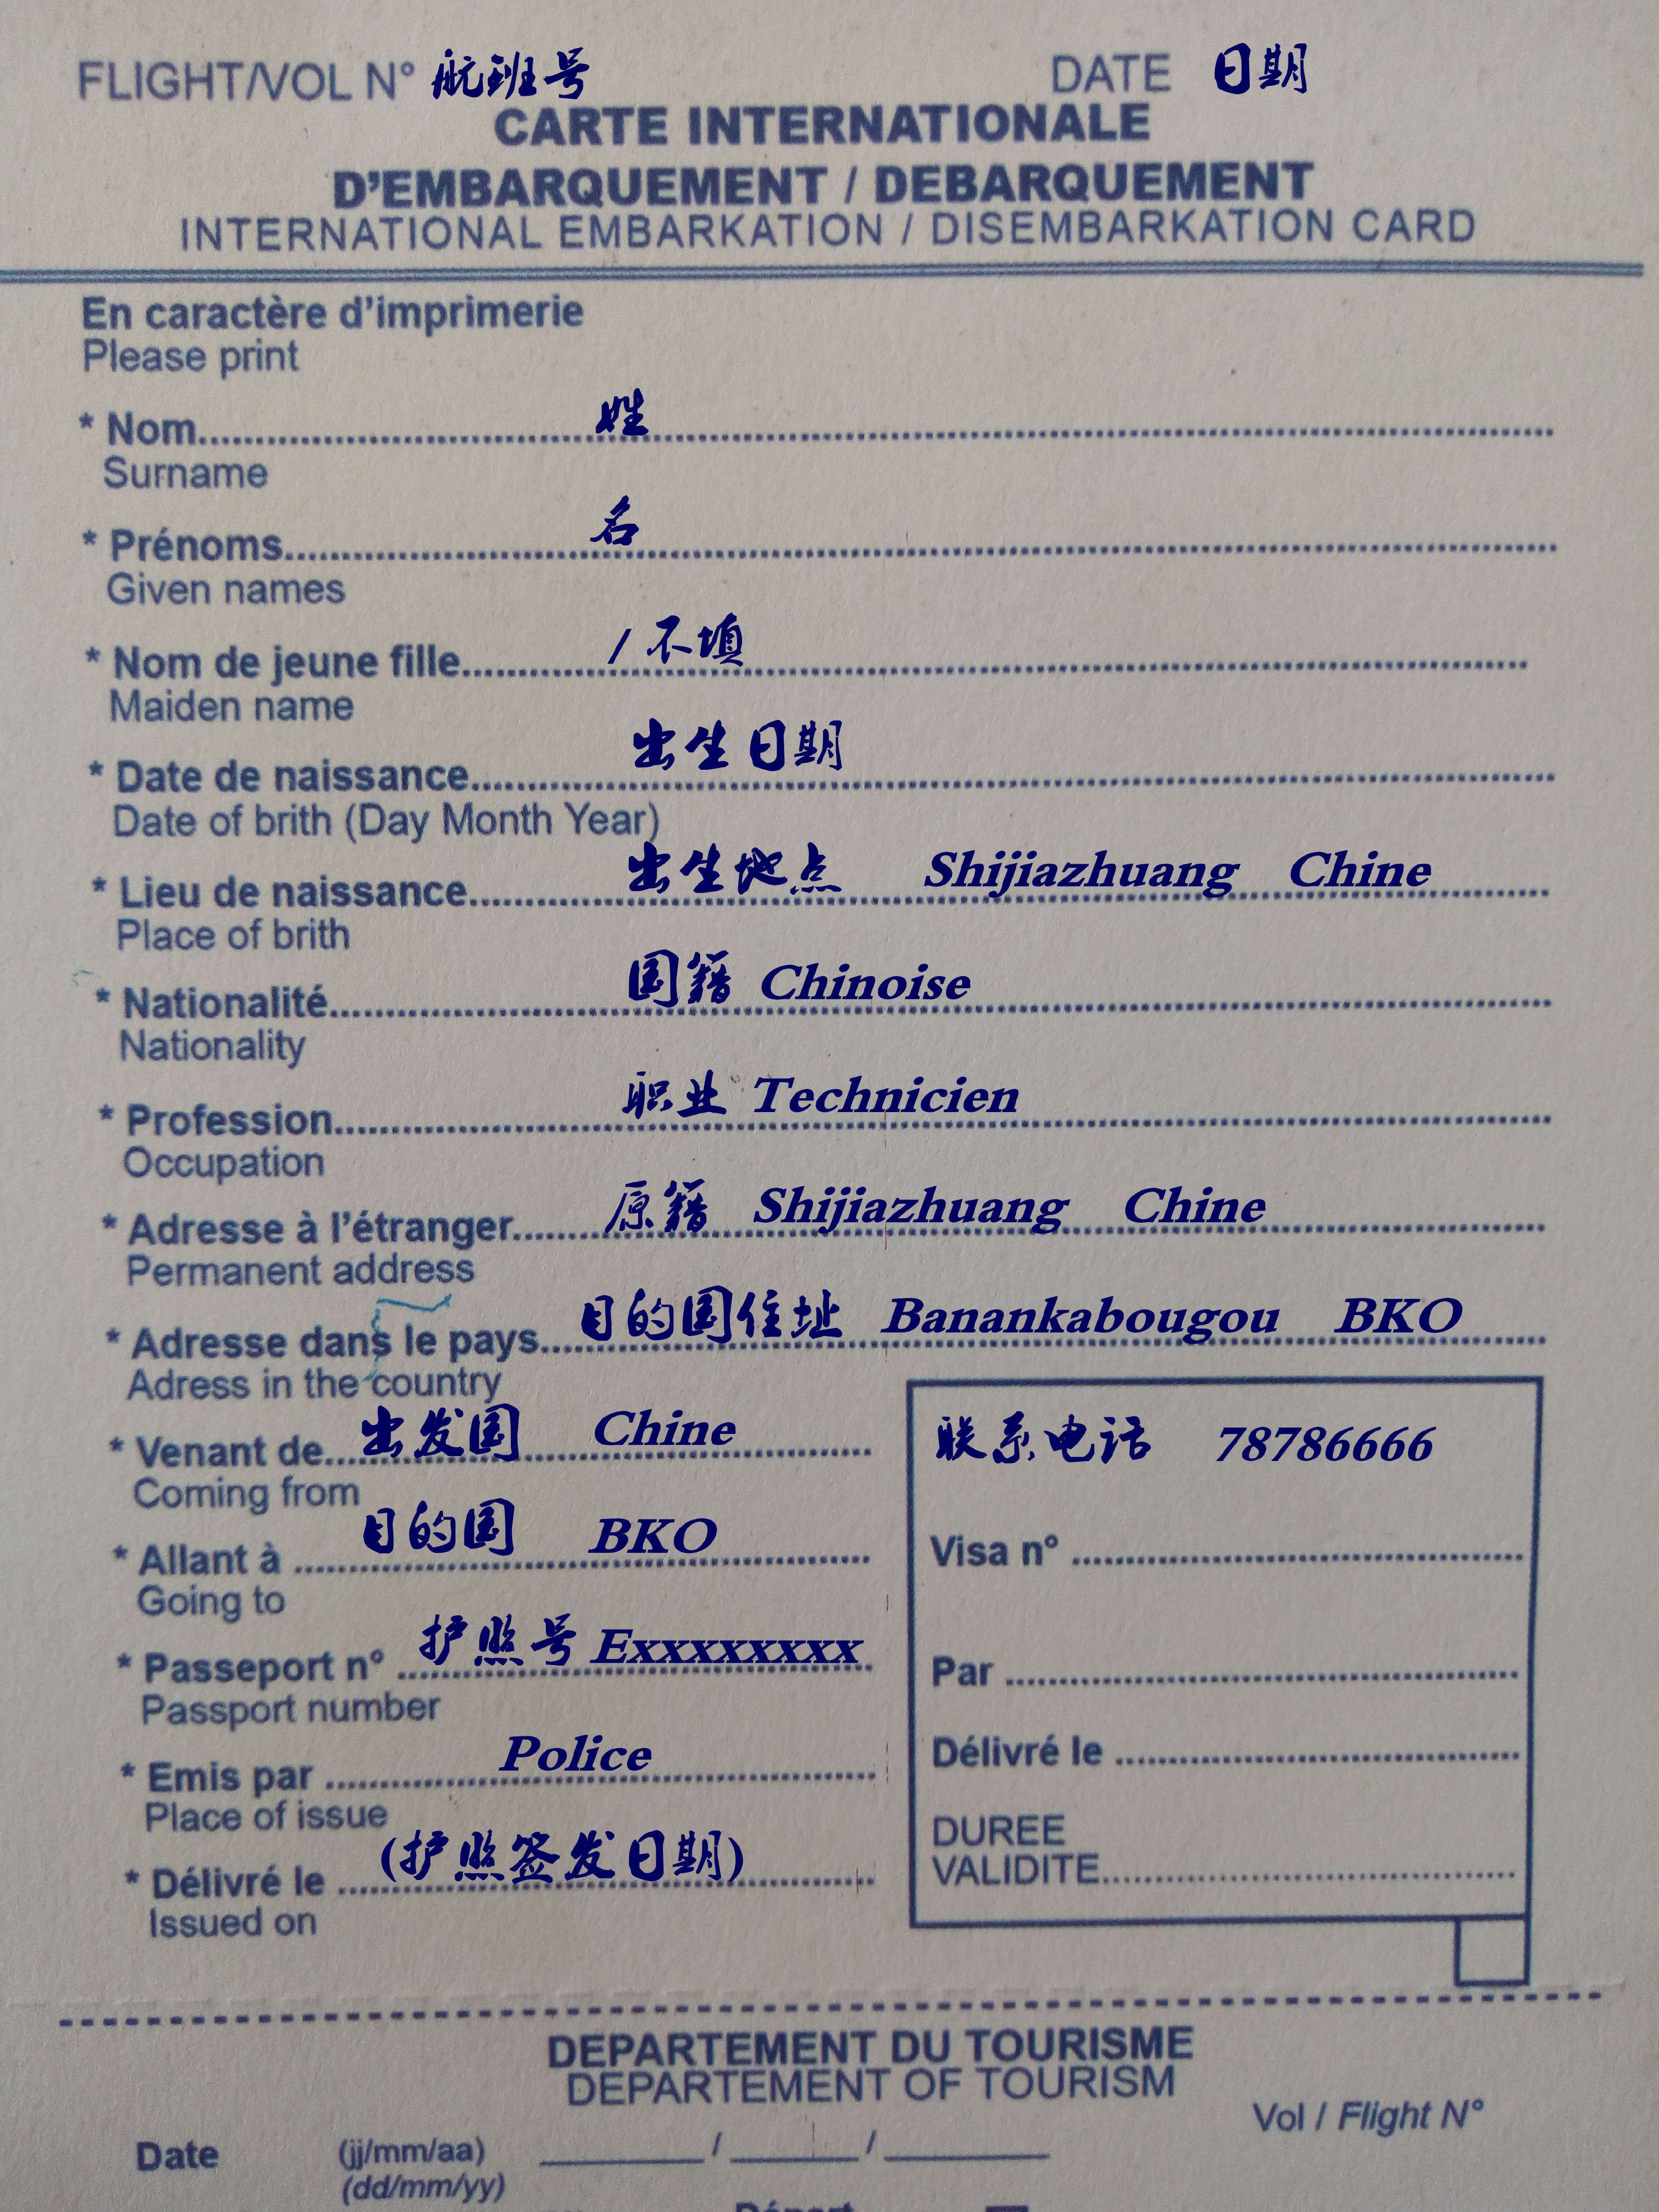 FLIGHT/VOL N° 航班号 DATE 日期
CARTE INTERNATIONALE
D'EMBARQUEMENT / DEBARQUEMENT
INTERNATIONAL EMBARKATION / DISEMBARKATION CARD
En caractère d'imprimerie
Please print
* Nom 姓
Surname
* Prénoms 名
Given names
* Nom de jeune fille / 不填
Maiden name
* Date de naissance 出生日期
Date of brith (Day Month Year)
* Lieu de naissance 出生地点 Shijiazhuang Chine
Place of brith
* Nationalité 国籍 Chinoise
Nationality
* Profession 职业 Technicien
Occupation
* Adresse à l'étranger 原籍 Shijiazhuang Chine
Permanent address
* Adresse dans le pays 目的国住址 Banankabougou BKO
Adress in the country
* Venant de 出发国 Chine
Coming from
* Allant à 目的国 BKO
Going to
* Passeport n° 护照号 Exxxxxxxxx
Passport number
* Emis par Police
Place of issue
* Délivré le (护照签发日期)
Issued on
联系电话 78786666
Visa n°
Par
Délivré le
DUREE
VALIDITE
DEPARTEMENT DU TOURISME
DEPARTEMENT OF TOURISM
Vol / Flight N°
Date (jj/mm/aa) / /
(dd/mm/yy)
Départ